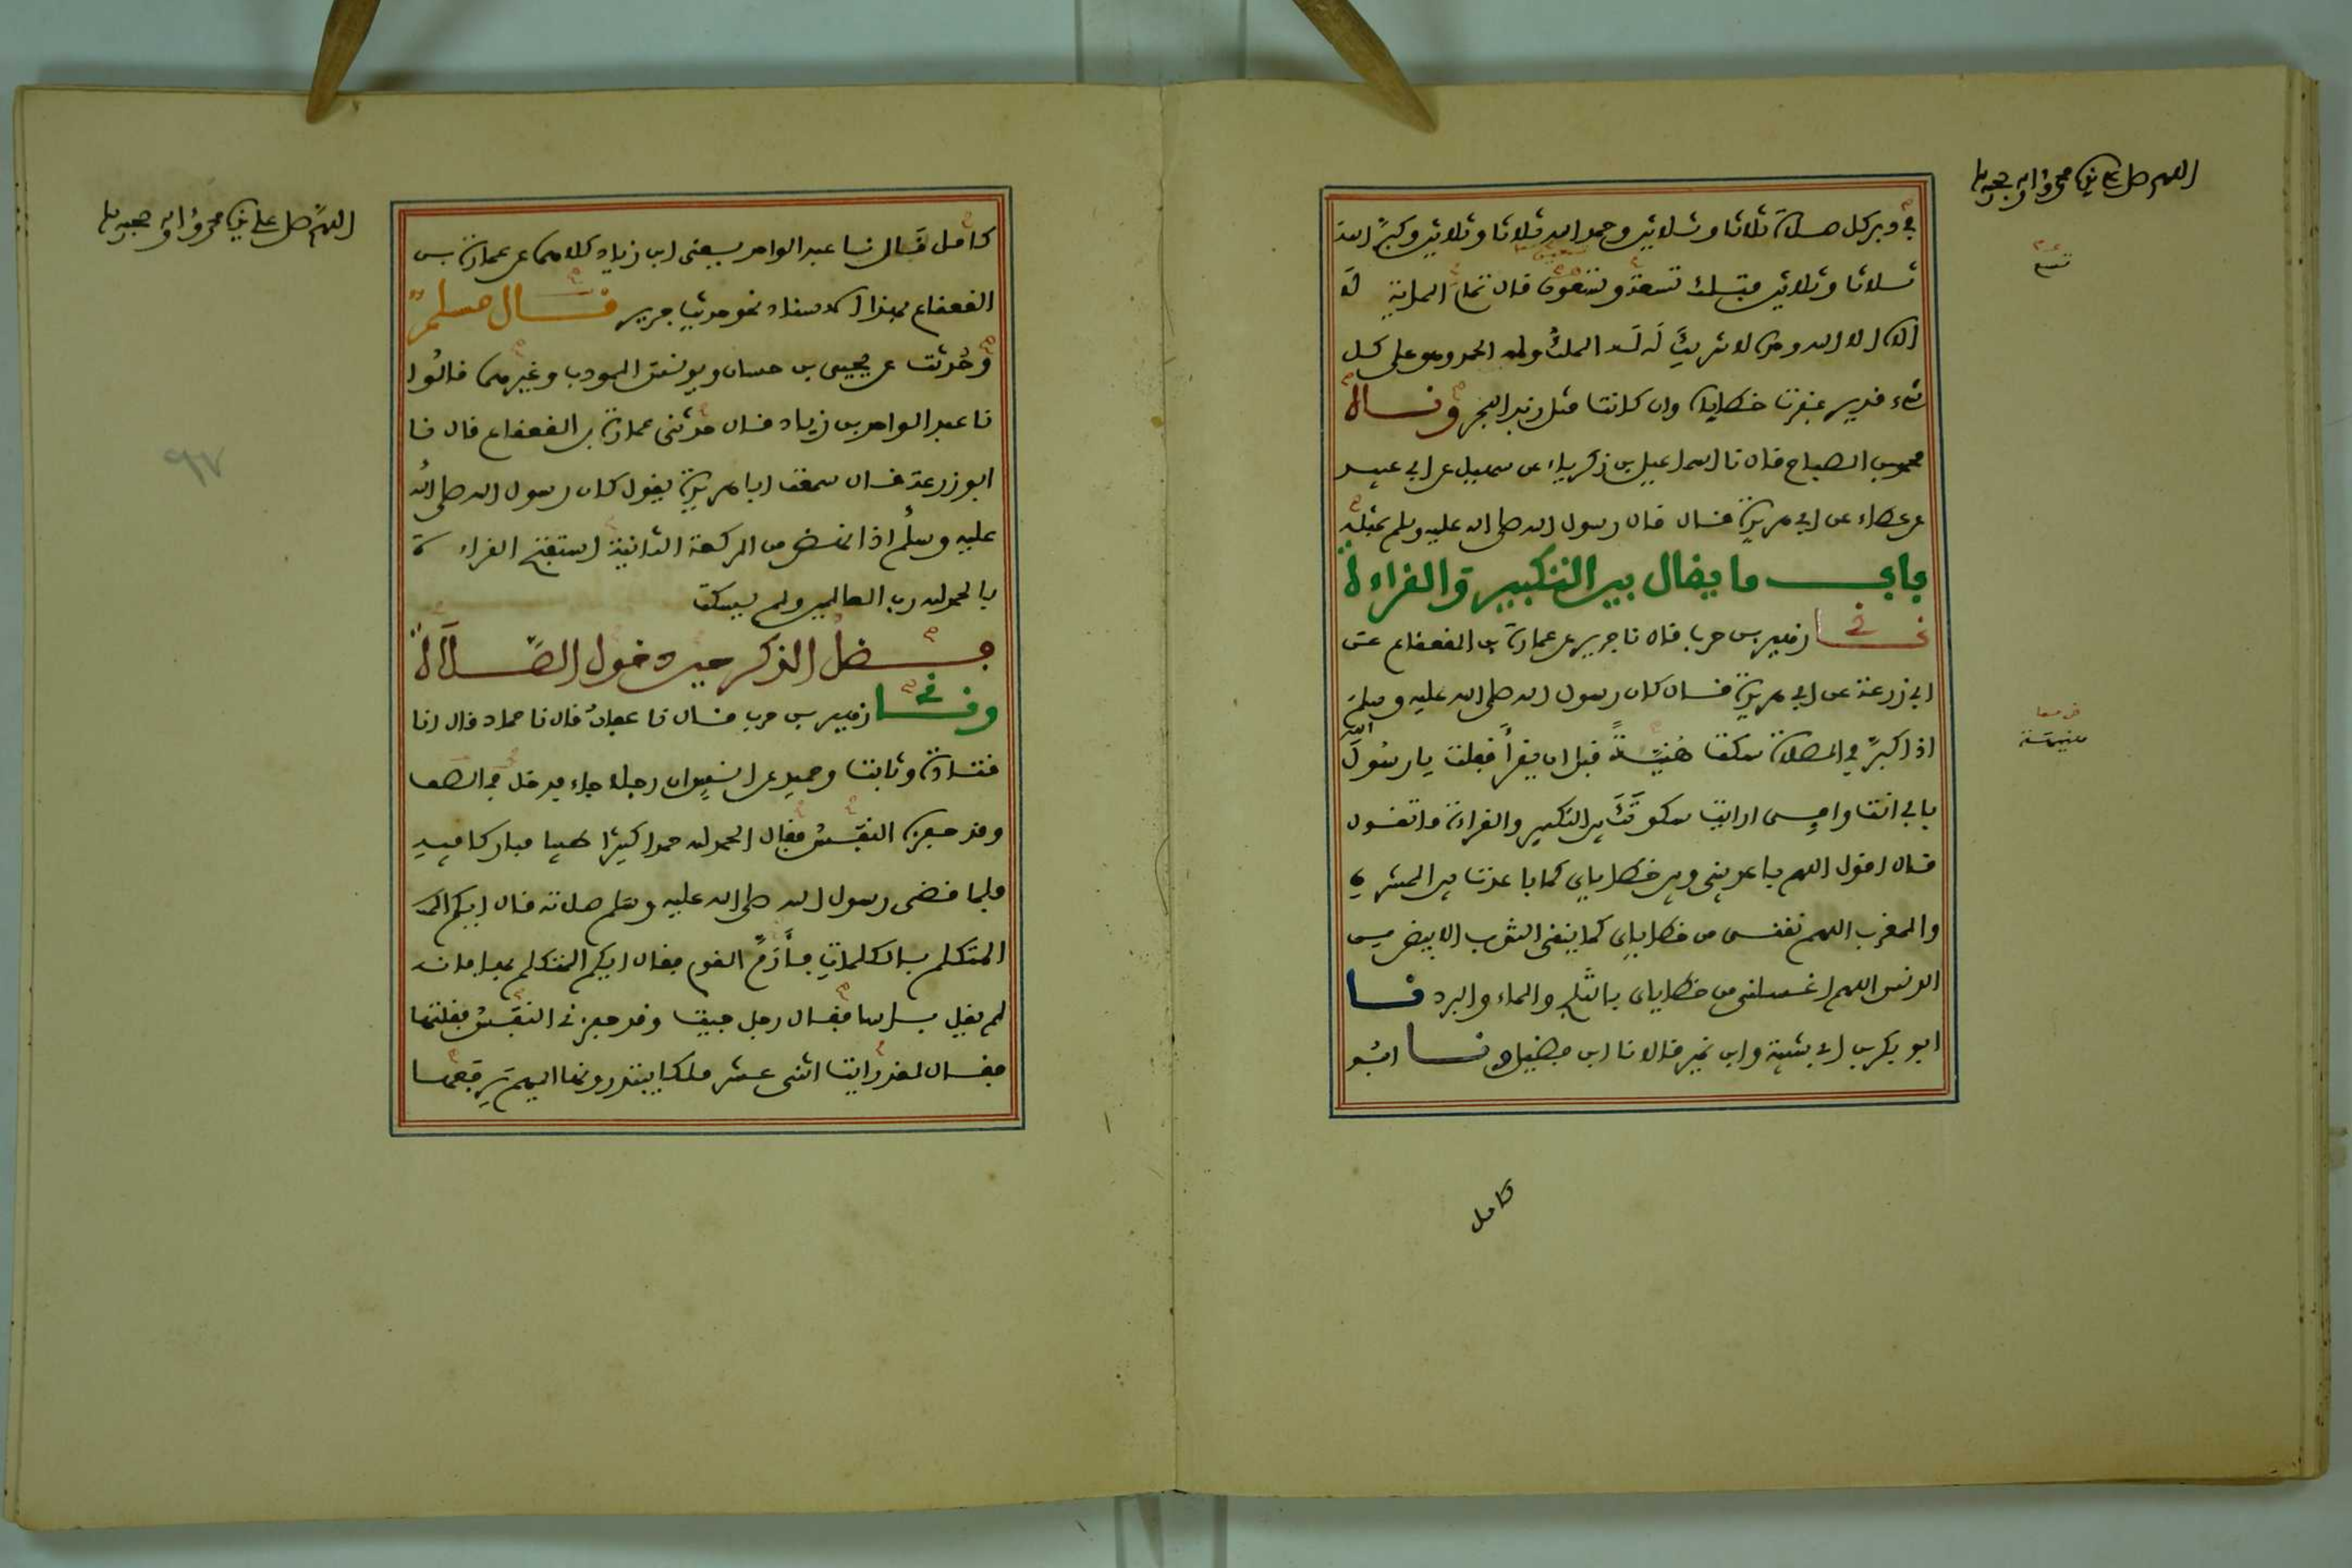 اللهم صل على نبيك محمد وآله وصحبه
في دبر كل صلاة ثلاثا وثلاثين وحمد الله ثلاثا وثلاثين وكبر الله
ثلاثا وثلاثين فتلك تسعة وتسعون قال تمام المائة لا
تسع
إلاه إلا الله وحده لا شريك له له الملك وله الحمد وهو على كل
شيء قدير غفرت خطاياه وإن كانت مثل زبد البحر ونا
محمد بن الصباح قال نا إسماعيل بن زكرياء عن سهيل عن أبي عبيد
عن عطاء عن أبي هريرة قال قال رسول الله صلى الله عليه وسلم بمثله
باب ما يقال بين التكبير والقراءة
نا زهير بن حرب قال نا جرير عن عمارة بن القعقاع عن
أبي زرعة عن أبي هريرة قال كان رسول الله صلى الله عليه وسلم
إذا كبر في الصلاة سكت هنية قبل أن يقرأ فقلت يا رسول الله
هنيهة
بأبي أنت وأمي أرأيت سكوتك بين التكبير والقراءة ما تقول
قال أقول اللهم باعد بيني وبين خطاياي كما باعدت بين المشرق
والمغرب اللهم نقني من خطاياي كما ينقى الثوب الأبيض من
الدنس اللهم اغسلني من خطاياي بالثلج والماء والبرد نا
أبو بكر بن أبي شيبة وابن نمير قالا نا ابن فضيل ونا أبو
كامل
اللهم صل على نبيك محمد وآله وصحبه
كامل قال نا عبد الواحد يعني ابن زياد كلاهما عن عمارة بن
القعقاع بهذا الإسناد نحو حديث جرير قال مسلم
وحدثت عن يحيى بن حسان ويونس المودب وغيرهما قالوا
نا عبد الواحد بن زياد قال حدثني عمارة بن القعقاع قال نا
٩٧
أبو زرعة قال سمعت أبا هريرة يقول كان رسول الله صلى الله
عليه وسلم إذا نهض من الركعة الثانية استفتح القراءة
بالحمد لله رب العالمين ولم يسكت
فضل الذكر حين دخول الصلاة
ونا زهير بن حرب قال نا عفان قال نا حماد قال أنا
قتادة وثابت وحميد عن أنس أن رجلا جاء فدخل في الصف
وقد حفزه النفس فقال الحمد لله حمدا كثيرا طيبا مباركا فيه
فلما قضى رسول الله صلى الله عليه وسلم صلاته قال أيكم
المتكلم بالكلمات فأرم القوم فقال أيكم المتكلم بها فإنه
لم يقل بأسا فقال رجل جيت وقد حفزني النفس فقلتها
فقال لقد رأيت اثني عشر ملكا يبتدرونها أيهم يرفعها